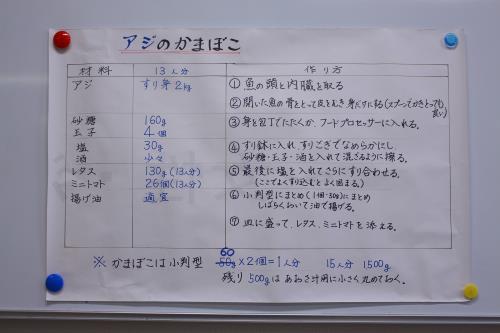 アジのかまぼこ
材料 13人分 作り方
アジ すり身2kg ① 魚の頭と内臓を取る
② 開いた魚の骨をとって皮をむき、身だけにする(スプーンでかきとっても良い)
砂糖 160g ③ 身を包丁でたたくか、フードプロセッサーに入れる。
玉子 4個
塩 30g ④ すり鉢に入れ、すりこぎでなめらかにし、
酒 少々 砂糖・玉子・酒を入れて混ざるように擦る。
レタス 130g(13人分) ⑤ 最後に塩を入れてさらにすり合わせる。
ミニトマト 26個(13人分) (ここでよくすり込むとよく固まる。)
揚げ油 適宜 ⑥ 小判型にまとめ(1個・30g)にまとめ
しばらくおいて油で揚げる。
⑦ 皿に盛って、レタス、ミニトマトを添える。
60
※ かまぼこは小判型 50g×2個=1人分 15人分 1500g
残り500gはあおさ汁用に小さく丸めておく。